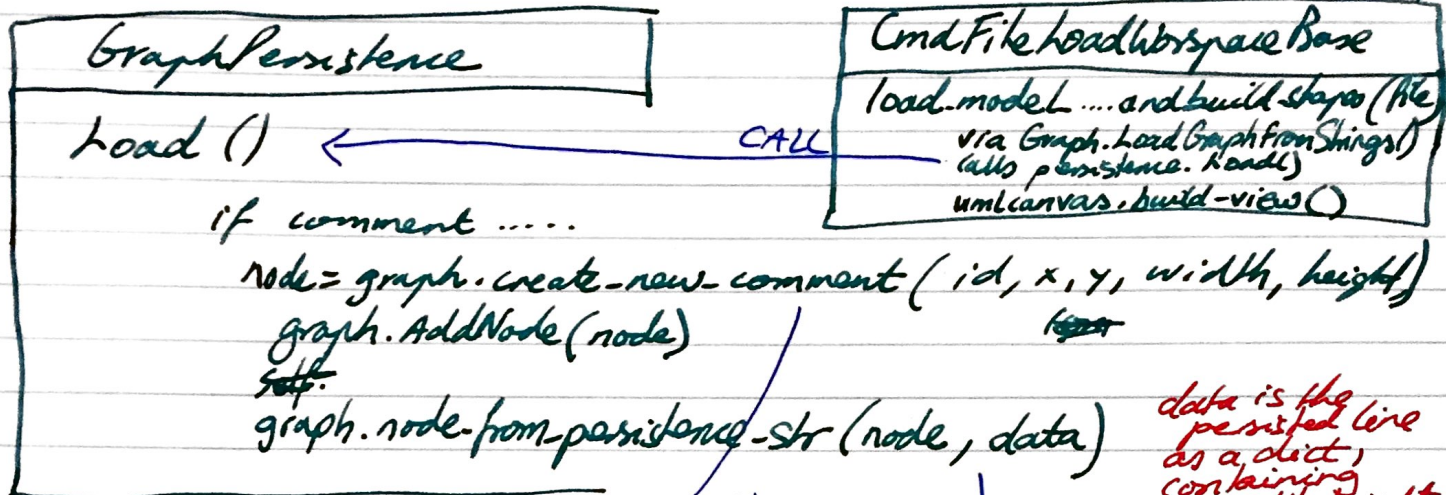 GraphPersistence
Load ()
if comment .....
node = graph.create-new-comment ( id, x, y, width, height)
graph.AddNode(node)
self.
graph.node-from-persistence-str (node, data)
CALL
CmdFileLoadWorkspaceBase
load-model ....and build shapes (file)
via Graph.LoadGraphFromStrings()
calls persistence.Load()
umlcanvas.build-view()
data is the
persisted line
as a dict,
containing